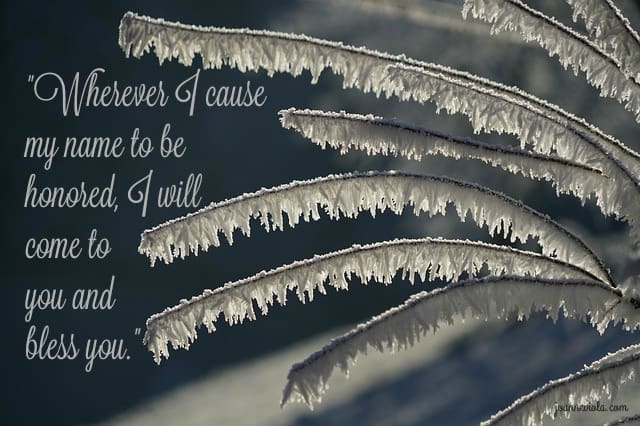 "Wherever I cause
my name to be
honored, I will
come to
you and
bless you."
joanneviola.com